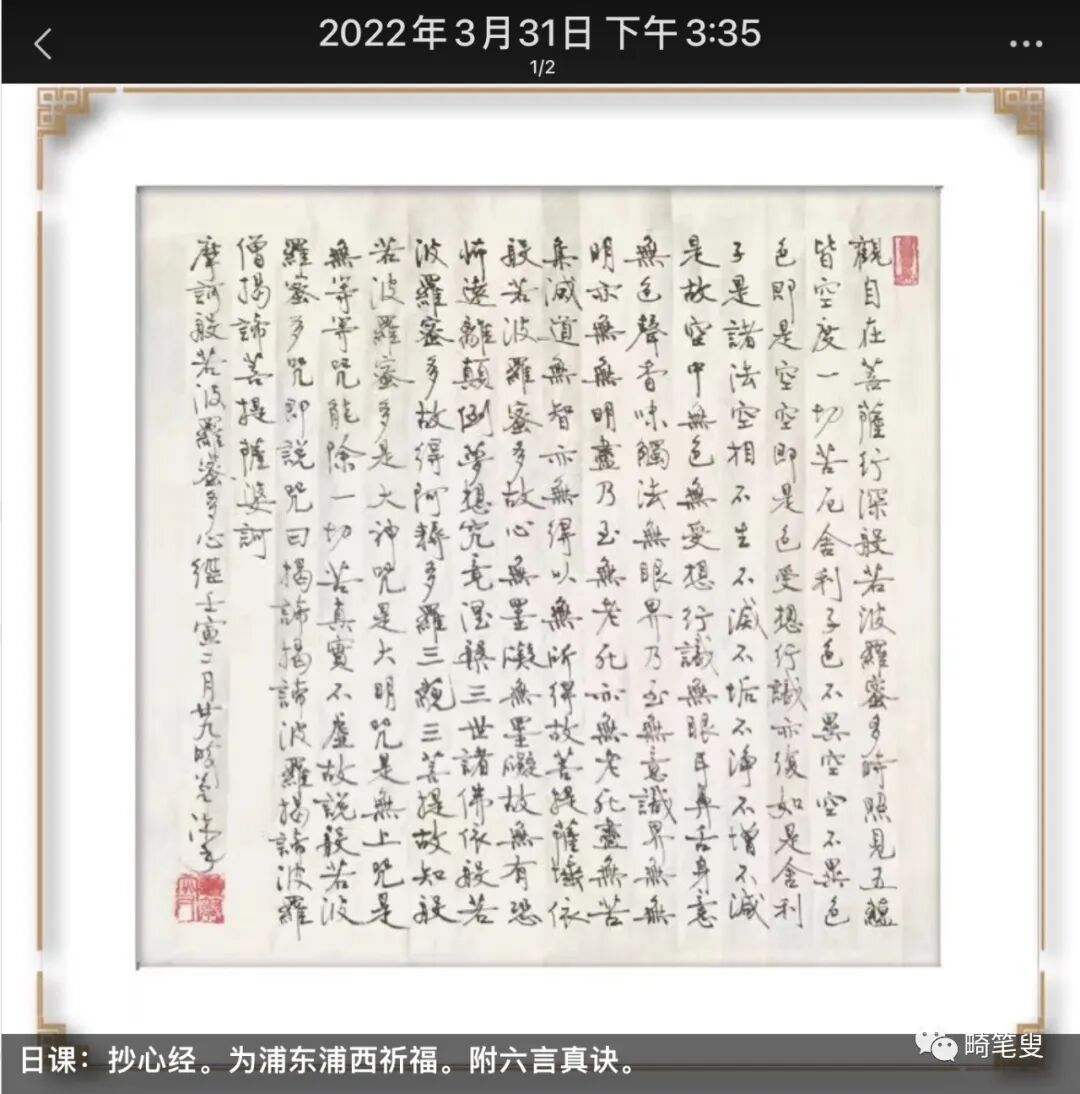 2022年3月31日 下午3:35
1/2
觀自在菩薩行深般若波羅蜜多時照見五蘊
皆空度一切苦厄舍利子色不異空空不異色
色即是空空即是色受想行識亦復如是舍利
子是諸法空相不生不滅不垢不淨不增不減
是故空中無色無受想行識無眼耳鼻舌身意
無色聲香味觸法無眼界乃至無意識界無無
明亦無無明盡乃至無老死亦無老死盡無苦
集滅道無智亦無得以無所得故菩提薩埵依
般若波羅蜜多故心無罣礙無罣礙故無有恐
怖遠離顛倒夢想究竟涅槃三世諸佛依般若
波羅蜜多故得阿耨多羅三藐三菩提故知般
若波羅蜜多是大神咒是大明咒是無上咒是
無等等咒能除一切苦真實不虛故說般若波
羅蜜多咒即說咒曰揭諦揭諦波羅揭諦波羅
僧揭諦菩提薩婆訶
摩訶般若波羅蜜多心經壬寅二月廿九
日课：抄心经。为浦东浦西祈福。附六言真诀。
畸笔叟